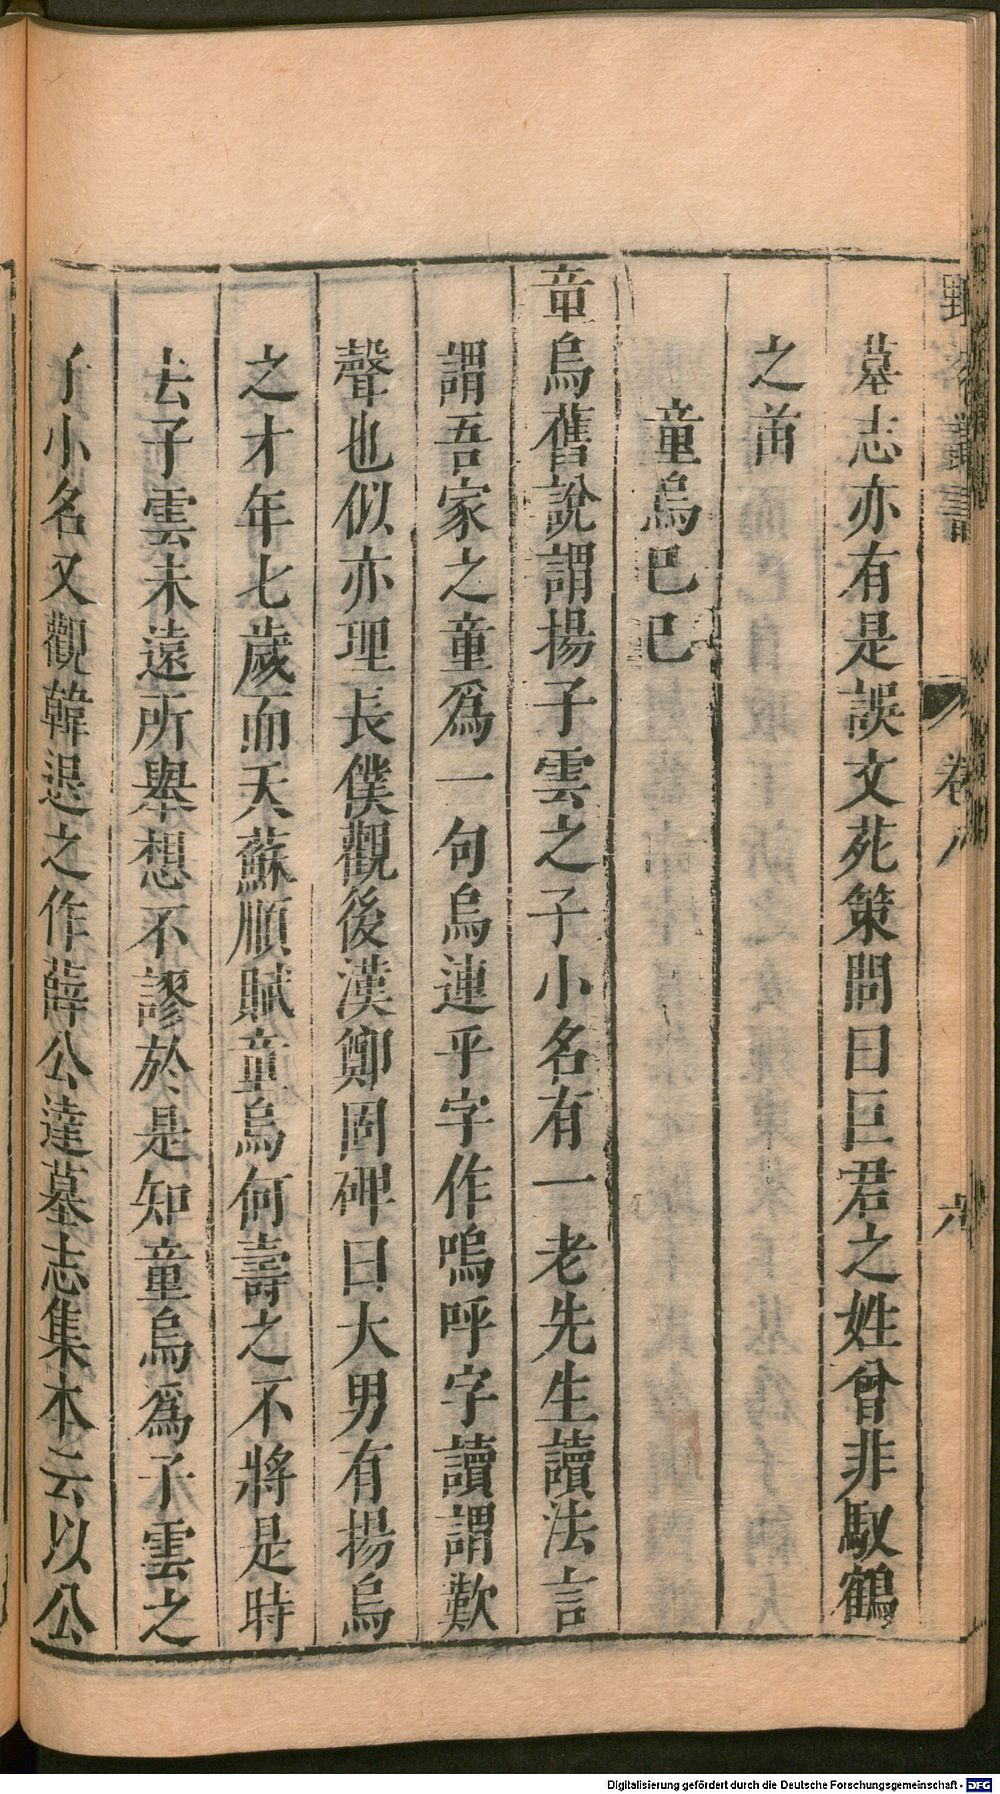 野客叢書 卷八 六
墓志亦有是誤文苑策問曰巨君之姓曾非馭鶴
之胄
童烏巴巳
童烏舊說謂揚子雲之子小名有一老先生讀法言
謂吾家之童爲一句烏連乎字作嗚呼字讀謂歎
聲也似亦理長僕觀後漢鄭固碑曰大男有揚烏
之才年七歲而夭蘇順賦童烏何壽之不將是時
去子雲未遠所舉想不謬於是知童烏爲子雲之
子小名又觀韓退之作薛公達墓志集本云以公
Digitalisierung gefördert durch die Deutsche Forschungsgemeinschaft - DFG